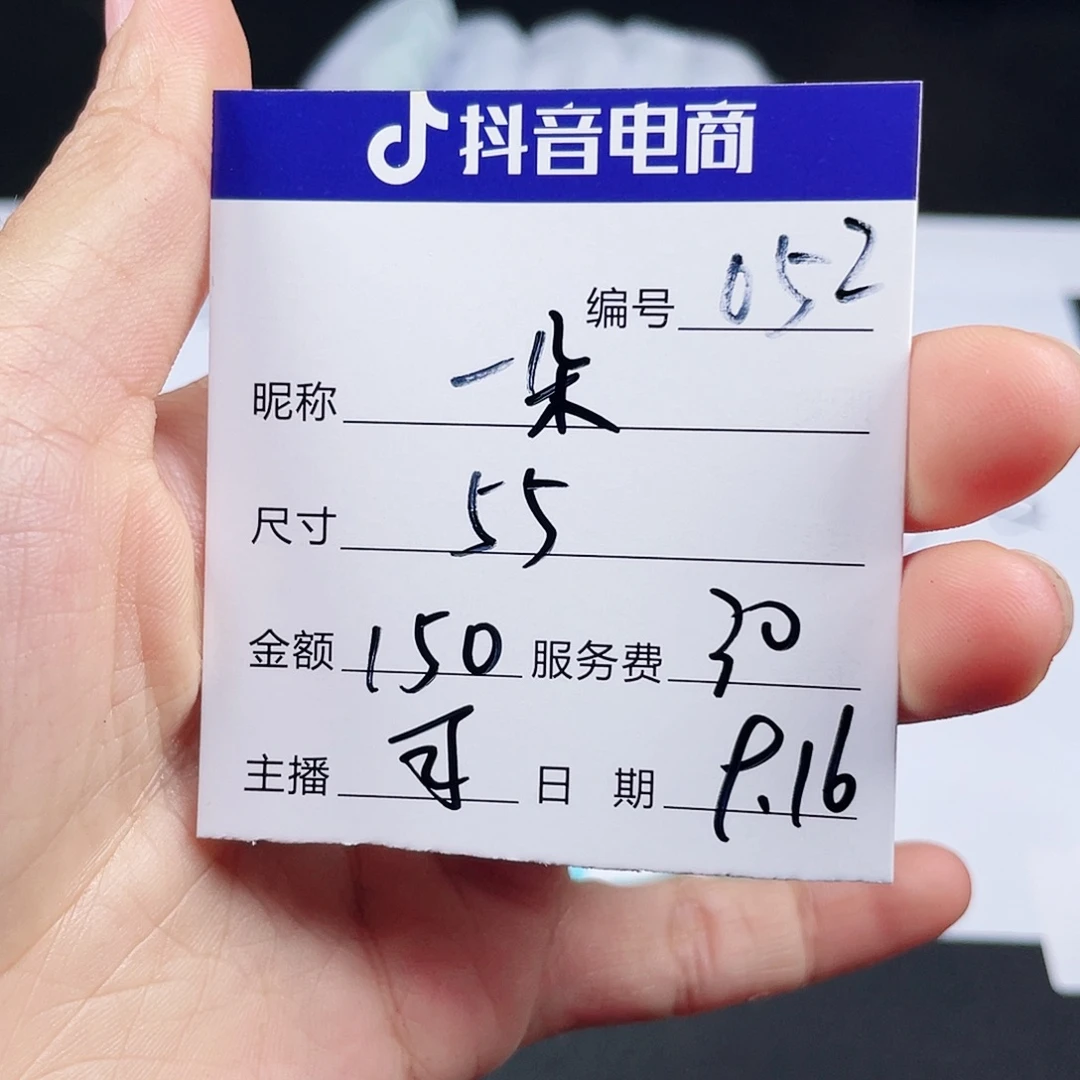 抖音电商
编号 052
昵称 一朱
尺寸 55
金额 150 服务费 30
主播 日期 9.16